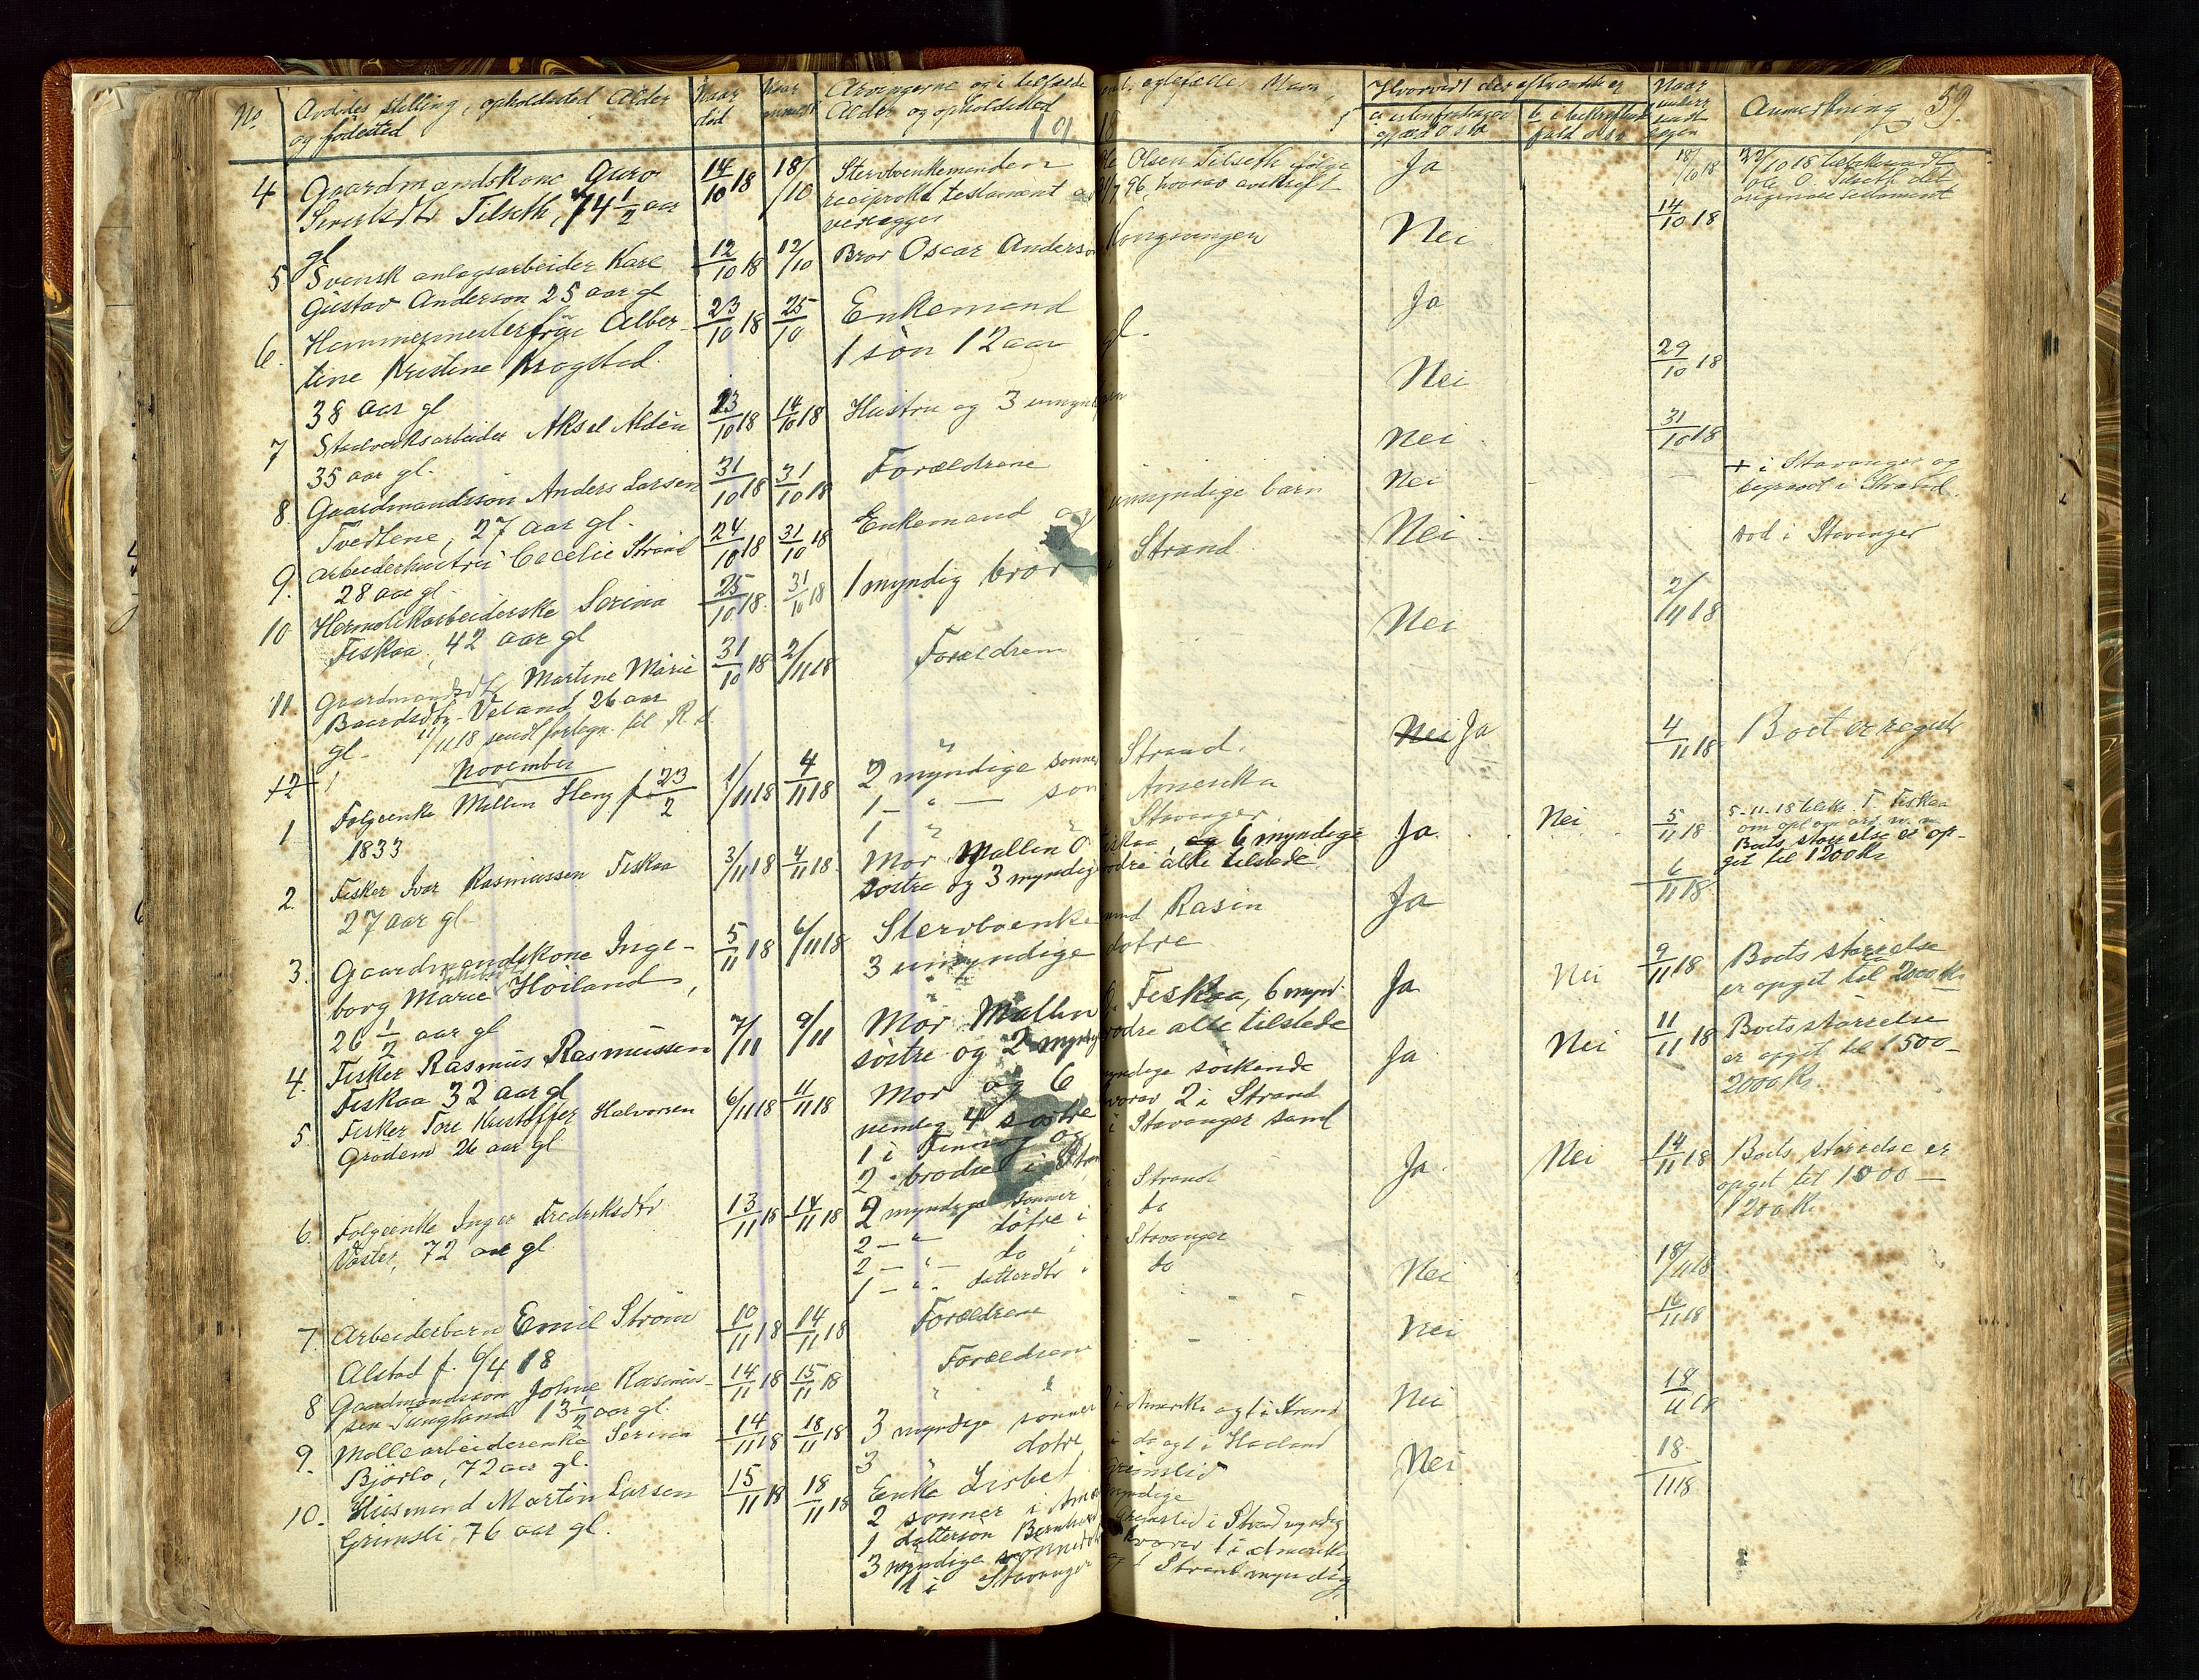 No. Avdødes stilling, opholdssted Alder og fødested
Naar død
Naar anmeldt
Arvingerne og i tilfælde
Alder og opholdssted
1918
Hvorvidt der efterladt er
Naar
Anmerkning 59.
4 Gaardmandskone Guro 14/10 18 18/10 Stervboenkemanden Ole Olsen Tilseth ifølge Ja 18/10 18 22/10 18 tilbakesendt
Sivertsdtr Tilseth, 74 1/2 aar reciproke testament av 31/7 96, hvorav avskrift Ole O. Tilseth det
gl vedlægges originale testament
5 Svensk anlægsarbeider Karl 12/10 18 12/10 Bror Oscar Anderson Kongsvinger Nei 14/10 18
Gustav Anderson 25 aar gl
6. Hammermesterfrue Alber- 23/10 18 25/10 Enkemand Ja
tine Kristine Krogstad 1 søn 12 aar gl.
38 aar gl
7 Staalverksarbeider Aksel Aldén 23/10 18 14/10 18 Hustru og 3 umyndige Nei 29/10 18
35 aar gl.
8 Gaardmandssøn Anders Larsen 31/10 18 31/10 18 Forældrene Nei 31/10 18
Tveitene, 27 aar gl.
9. Arbeiderhustru Cecelie Strand 24/10 18 31/10 18 Enkemand og umyndige barn Nei + i Stavanger og
28 aar gl. begravet i Strand.
10 Hermetikarbeiderske Serina 25/10 18 31/10 18 1 myndig bror i Strand Nei død i Stavanger
Fiskaa, 42 aar gl
11 Gaardmandsdtr Martine Marie 31/10 18 2/11 18 Forældrene Nei 2/11 18
Baardsdtr Veland 26 aar
gl. 11/11 18 sendt fortegn. til
12 November
1 Folgeenke Mallin Heng f. 23/2 1/11 18 4/11 18 2 myndige sønner Strand. Nei Ja 4/11 18 Boet er registr
1833 1 - " - søn Amerika
1 " " Stavanger
2. Fisker Ivar Rasmussen Fiskaa 3/11 18 4/11 18 Mor Mallin O. Fiskaa, og 6 myndige Ja. Nei 5/11 18 5-11-18
27 aar gl. søstre og 3 myndige brødre alle tilstede Boets størrelse er op-
get til 1200 kr
3. Gaardmandskone Inge- 5/11 18 6/11 18 Stervboenkemand Rasin Ja 6/11 18
borg Marie Høiland, 3 umyndige døtre
26 1/2 aar gl
4. Fisker Rasmus Rasmussen 7/11 9/11 Mor Mallin O. Fiskaa, 6 mynd. Ja Nei 9/11 18 Boets størrelse
Fiskaa 32 aar gl søstre og 2 myndige brødre alle tilstede er opget til 2000 kr
5. Fisker Tore Kristoffer Halvorsen 6/11 18 11/11 18 Mor og 6 myndige søskende Ja Nei 11/11 18 Boets størrelse
Grødem 26 aar gl nemlig 4 søstre hvorav 2 i Strand er opget til 1500-
1 i Finnøy og 1 i Stavanger samt 2000 kr.
2 brødre i Strand
6. Folgeenke Inger Fredriksdtr 13/11 18 14/11 18 2 myndige sønner i Strand Ja. Nei 14/11 18 Boets størrelse er
Voster, 72 aar gl. 2 - " - døtre i do opget til 1000 -
2 - " - do i Stavanger 1200 kr.
1 - " - datterdtr i do
7. Arbeiderbarn Emil Strøm 10/11 18 14/11 18 Forældrene Nei 18/11 18
Alstad f. 6/4 18
8 Gaardmandssøn Johne Rasmus- 14/11 18 15/11 18 Forældrene Nei 16/11 18
sen Tungland 13 1/2 aar gl.
9. Møllearbeiderenke Serina 14/11 18 18/11 18 3 myndige sønner 2 i Amerika og 1 i Strand Nei 18/11 18
Bjørlo, 72 aar gl. 3 " døtre i do og 1 i Høiland
10. Husmand Martin Larsen 15/11 18 18/11 18 Enke Lisbet Grimslid Nei 18/11 18
Grimsli, 76 aar gl. 2 sønner i Amerika myndige
1 dattersøn Bernhard Grimslid i Strand myndig
3 myndige sønnedøtre hvorav 1 i Amerika
1 i Stavanger og 1 Strand myndig